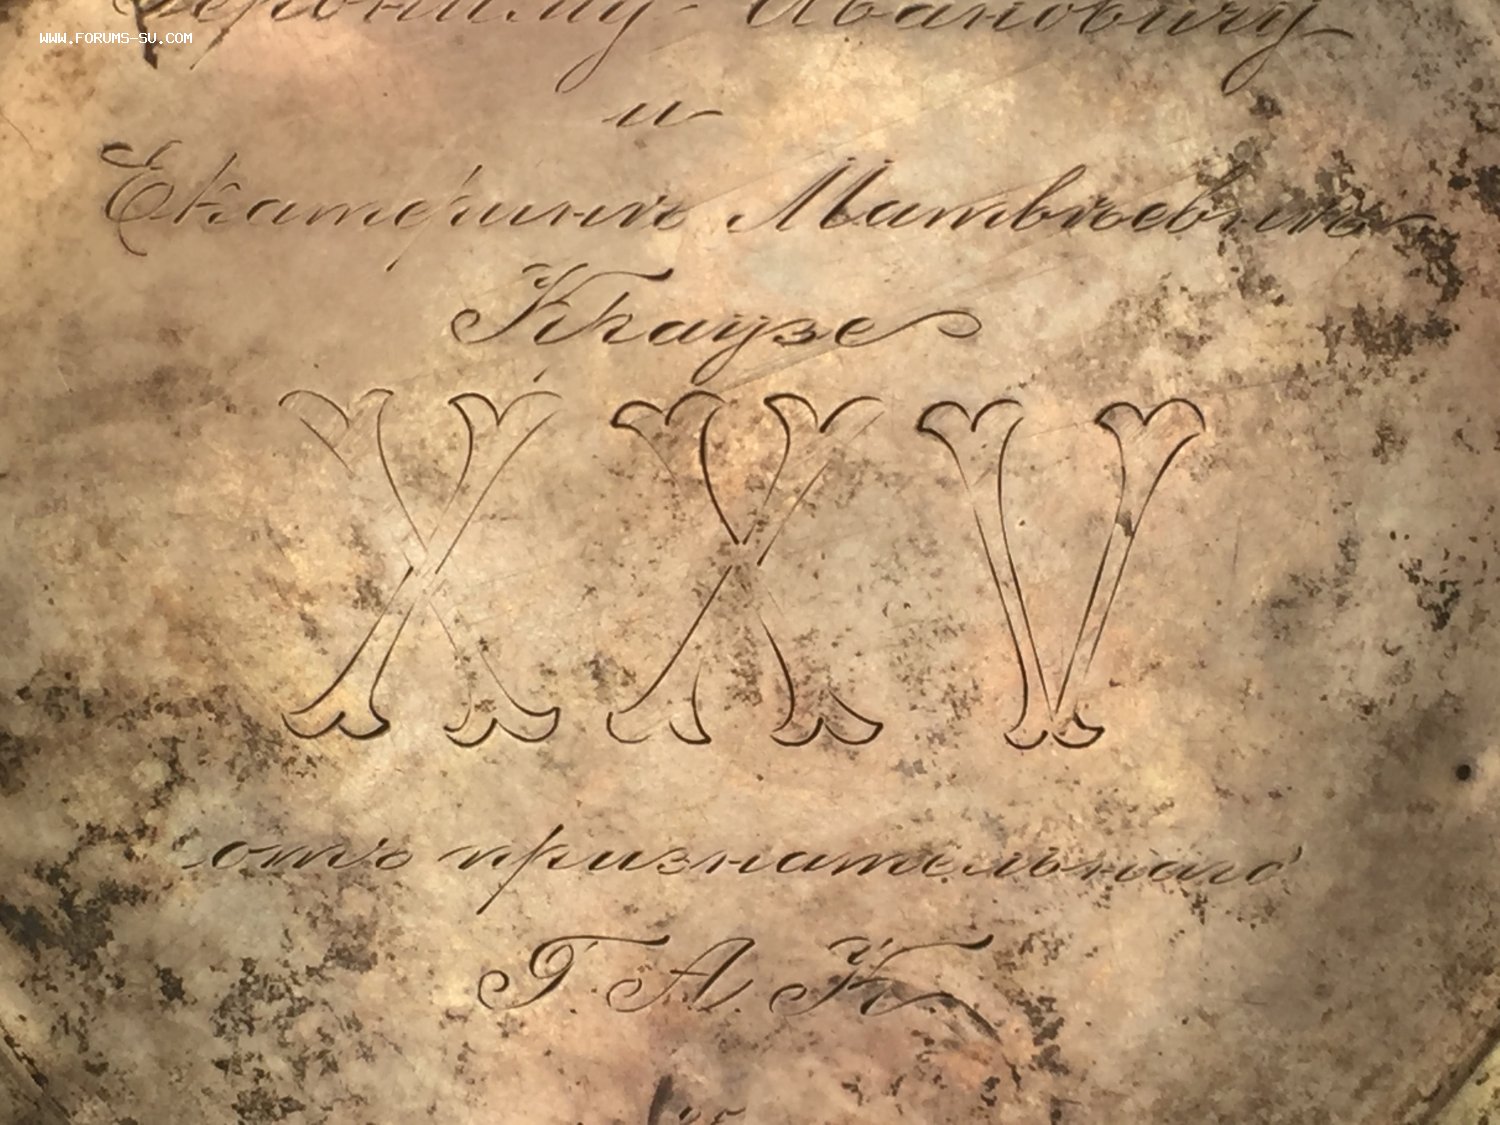 WWW.FORUMS-SU.COM
Ивановичу
и
Екатеринѣ Матвѣевнѣ
Краузе
XXV
отъ признательнаго
Г. А. К.